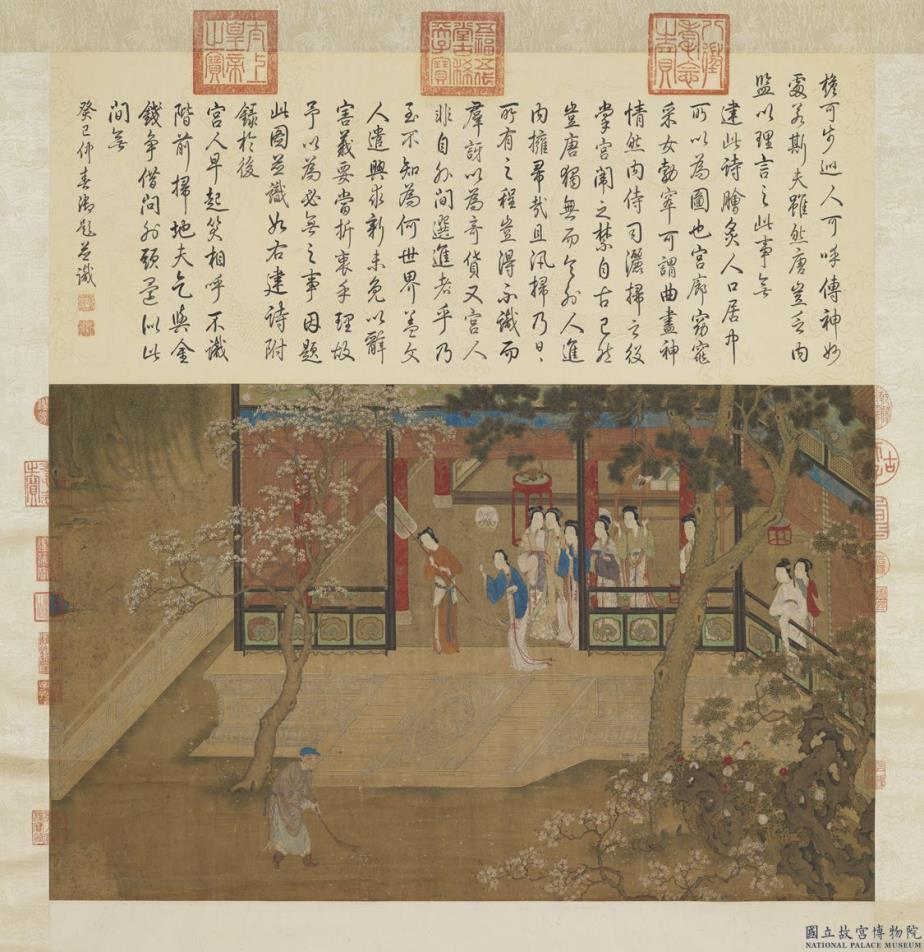 八徵耄念之寶
五福五代堂古稀天子寶
太上皇帝之寶
檐可步巡人可呼傳神妙
處若斯夫雖然唐豈乏內
監以理言之此事無
建此詩膾炙人口居中
所以為圖也宮廊窈窕
采女勃窣可謂曲盡神
情然內侍司灑掃之役
掌宮闈之禁自古已然
豈唐獨無而令外人進
內擁帚哉且汛掃乃日日
所有之程豈得不識而
羣訝以為奇貨又宮人
非自外間選進者乎乃
至不知為何世界蓋文
人遣興求新未免以辭
害義要當折衷乎理故
予以為必無之事因題
此圖並識如右建詩附
錄於後
宮人早起笑相呼不識
階前掃地夫乞與金
錢爭借問外頭還似此
間無
癸巳仲春御題並識
國立故宮博物院
NATIONAL PALACE MUSEUM